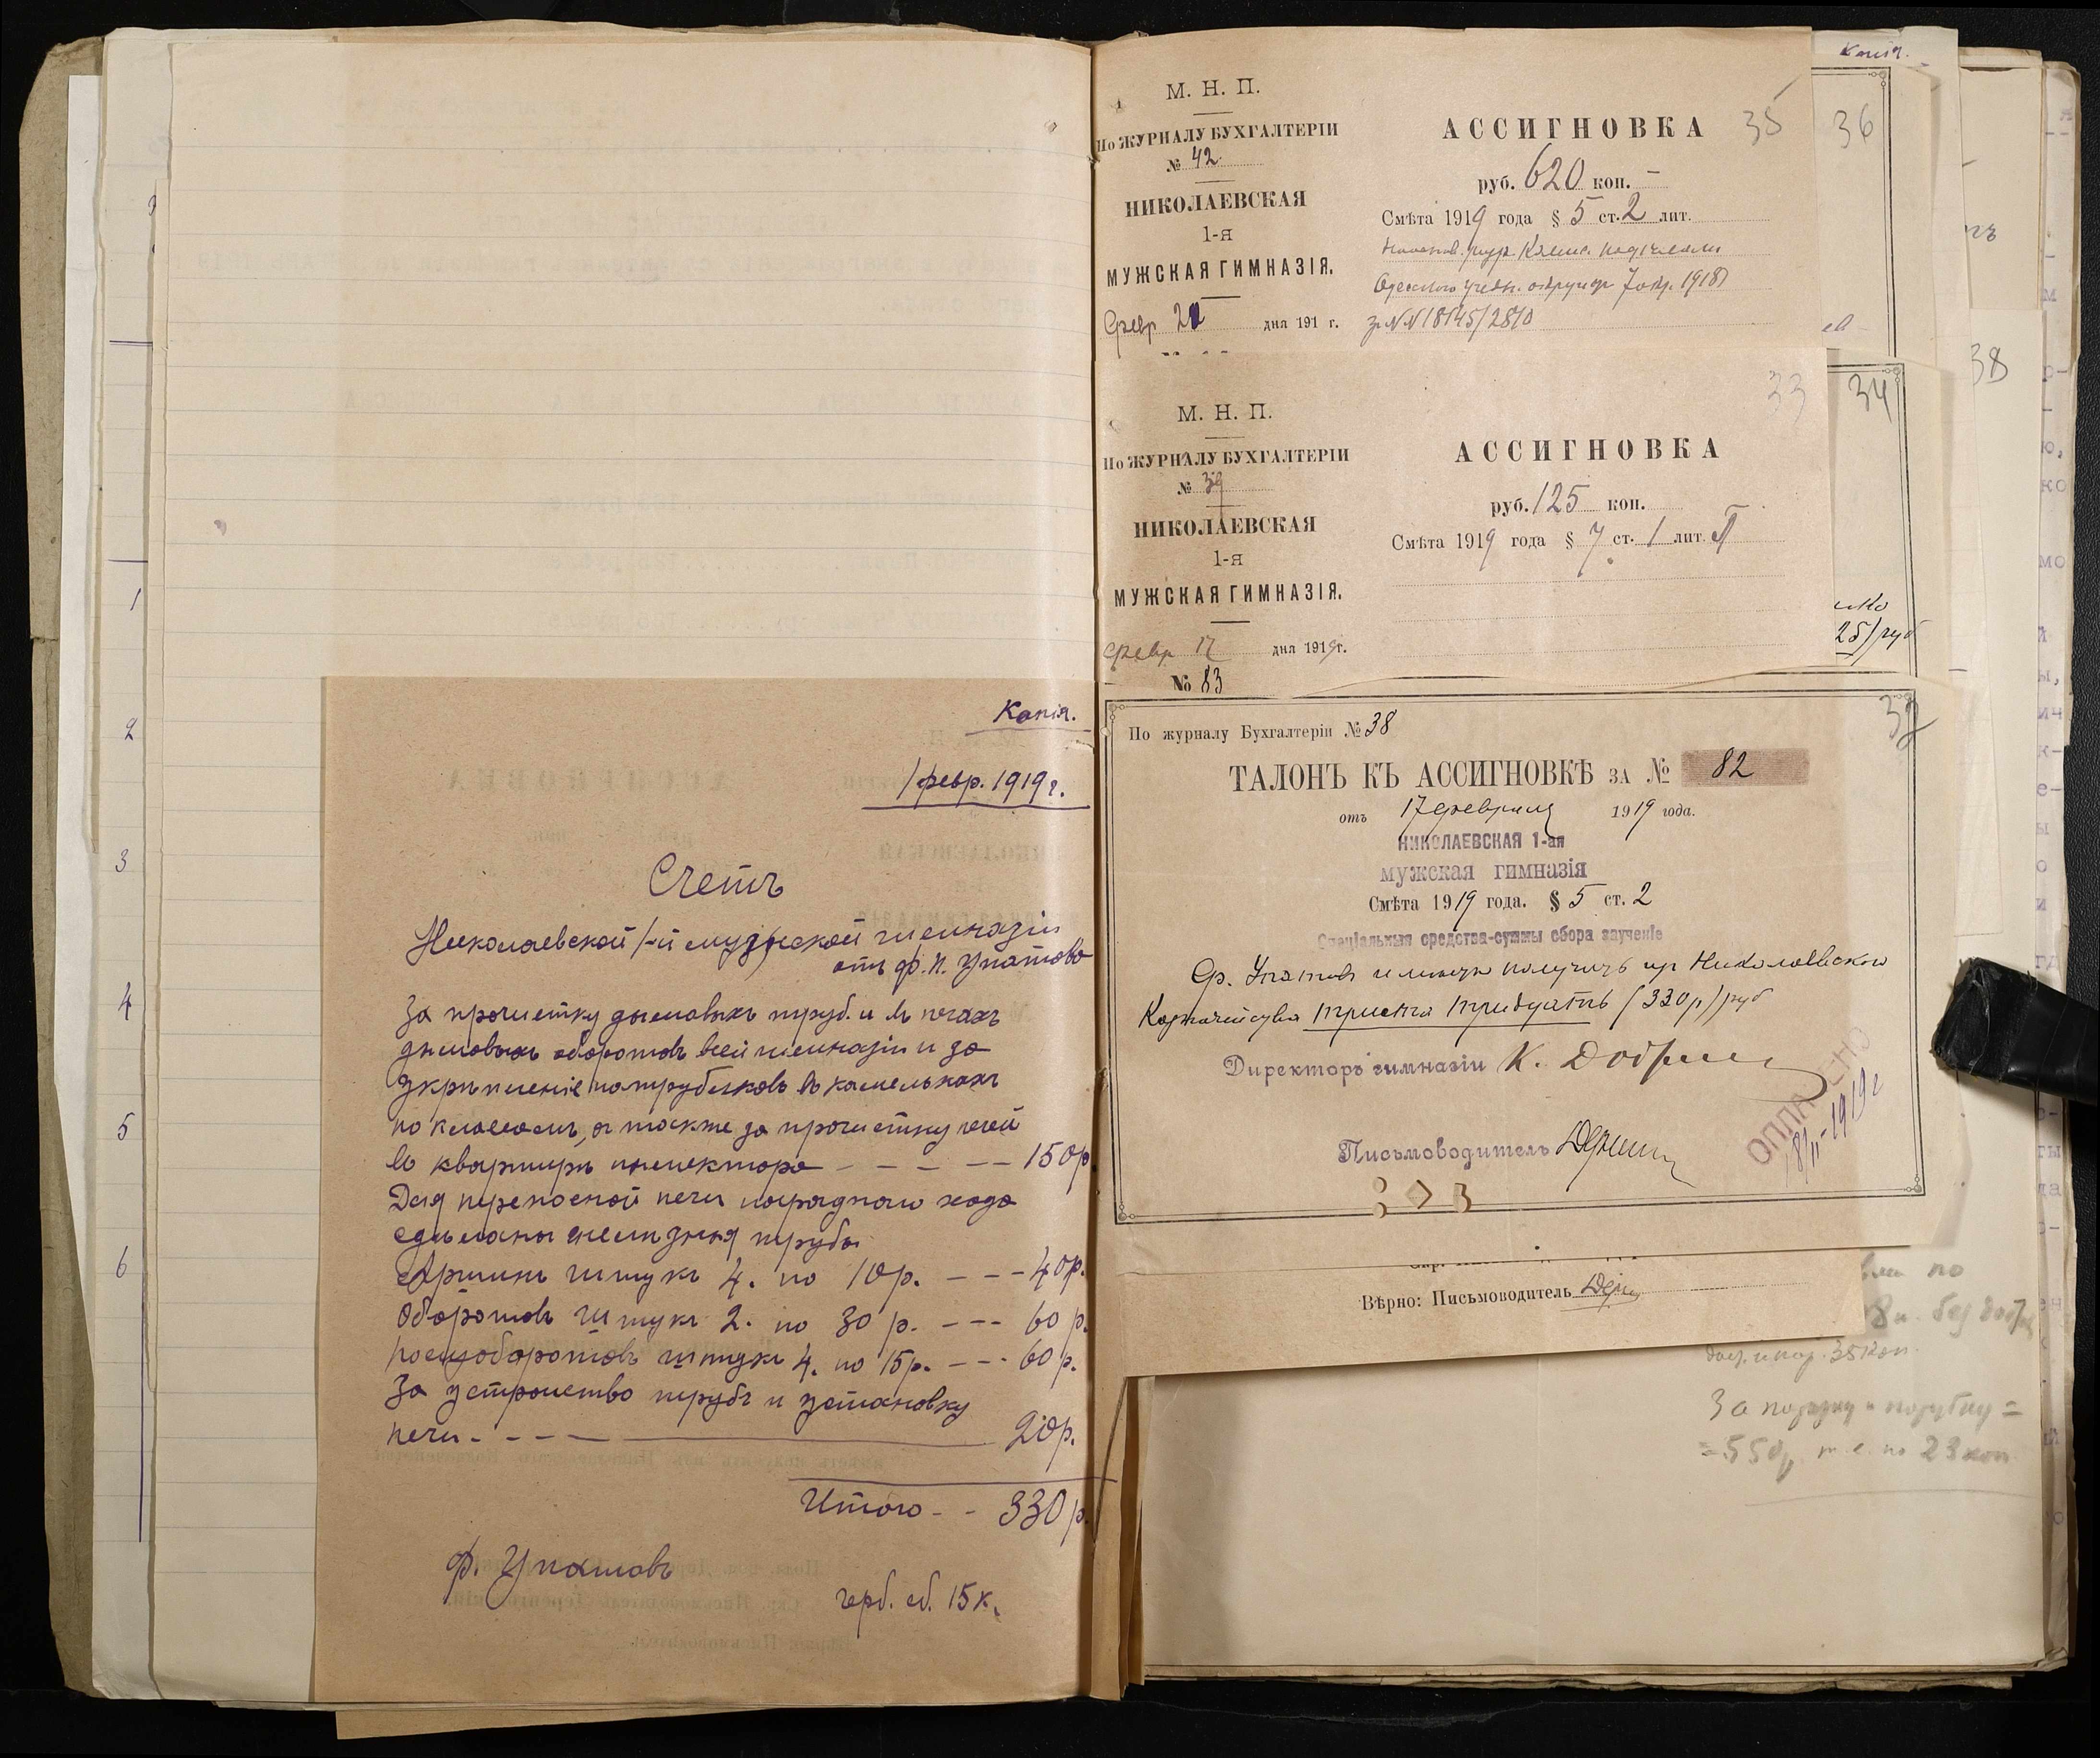 1
2
3
4
5
6
Копія.
1 февр. 1919 г.
Счетъ
Николаевской 1-й мужской гимназіи
отъ Ф. П. Упатова
За прочистку дымовыхъ труб. и въ печахъ
дымовыхъ оборотовъ всей гимназіи и за
укрѣпленіе патрубковъ въ камелькахъ
по классамъ, а также за прочистку печей
въ квартирѣ инспектора - - - - 150 р
Для переносной печи параднаго хода
сдѣланы желѣзныя трубы
Аршинъ штукъ 4. по 10 р. - - - 40 р.
Оборотовъ штукъ 2. по 30 р. - - - 60 р.
полуоборотовъ штукъ 4. по 15 р. - - - 60 р.
За устройство трубъ и установку
печи - - - - 20 р.
Итого - - 330 р.
Ф. Упатовъ
герб. сб. 15 к.
Копія.
М. Н. П.
По ЖУРНАЛУ БУХГАЛТЕРІИ
№ 42
НИКОЛАЕВСКАЯ
1-я
МУЖСКАЯ ГИМНАЗІЯ.
Февр дня 191 г.
АССИГНОВКА 35 36
руб. 620 коп. -
Смѣта 1919 года § 5 ст. 2 лит.
Одесскаго учебн. округа 7 1918
М. Н. П.
По ЖУРНАЛУ БУХГАЛТЕРІИ
№ 39
НИКОЛАЕВСКАЯ
1-я
МУЖСКАЯ ГИМНАЗІЯ.
Февр 17 дня 1919 г.
№ 83
33 34 38
АССИГНОВКА
руб. 125 коп.
Смѣта 1919 года § 7 ст. 1 лит. П
32
По журналу Бухгалтеріи № 38
ТАЛОНЪ КЪ АССИГНОВКѢ ЗА № 82
отъ 17 февраля 1919 года.
НИКОЛАЕВСКАЯ 1-ая
мужская гимназія
Смѣта 1919 года. § 5 ст. 2
Спеціальныя средства-суммы сбора за ученіе
Ф. Упатовъ имѣетъ получить изъ Николаевскаго
Казначейства триста тридцать (330 р) руб
Директоръ гимназіи К.
ОПЛАЧЕНО
18/II-1919 г
Письмоводитель
Вѣрно: Письмоводитель
35 коп.
За порѣзку и порубку =
= 550 р. т. е. по 23 коп